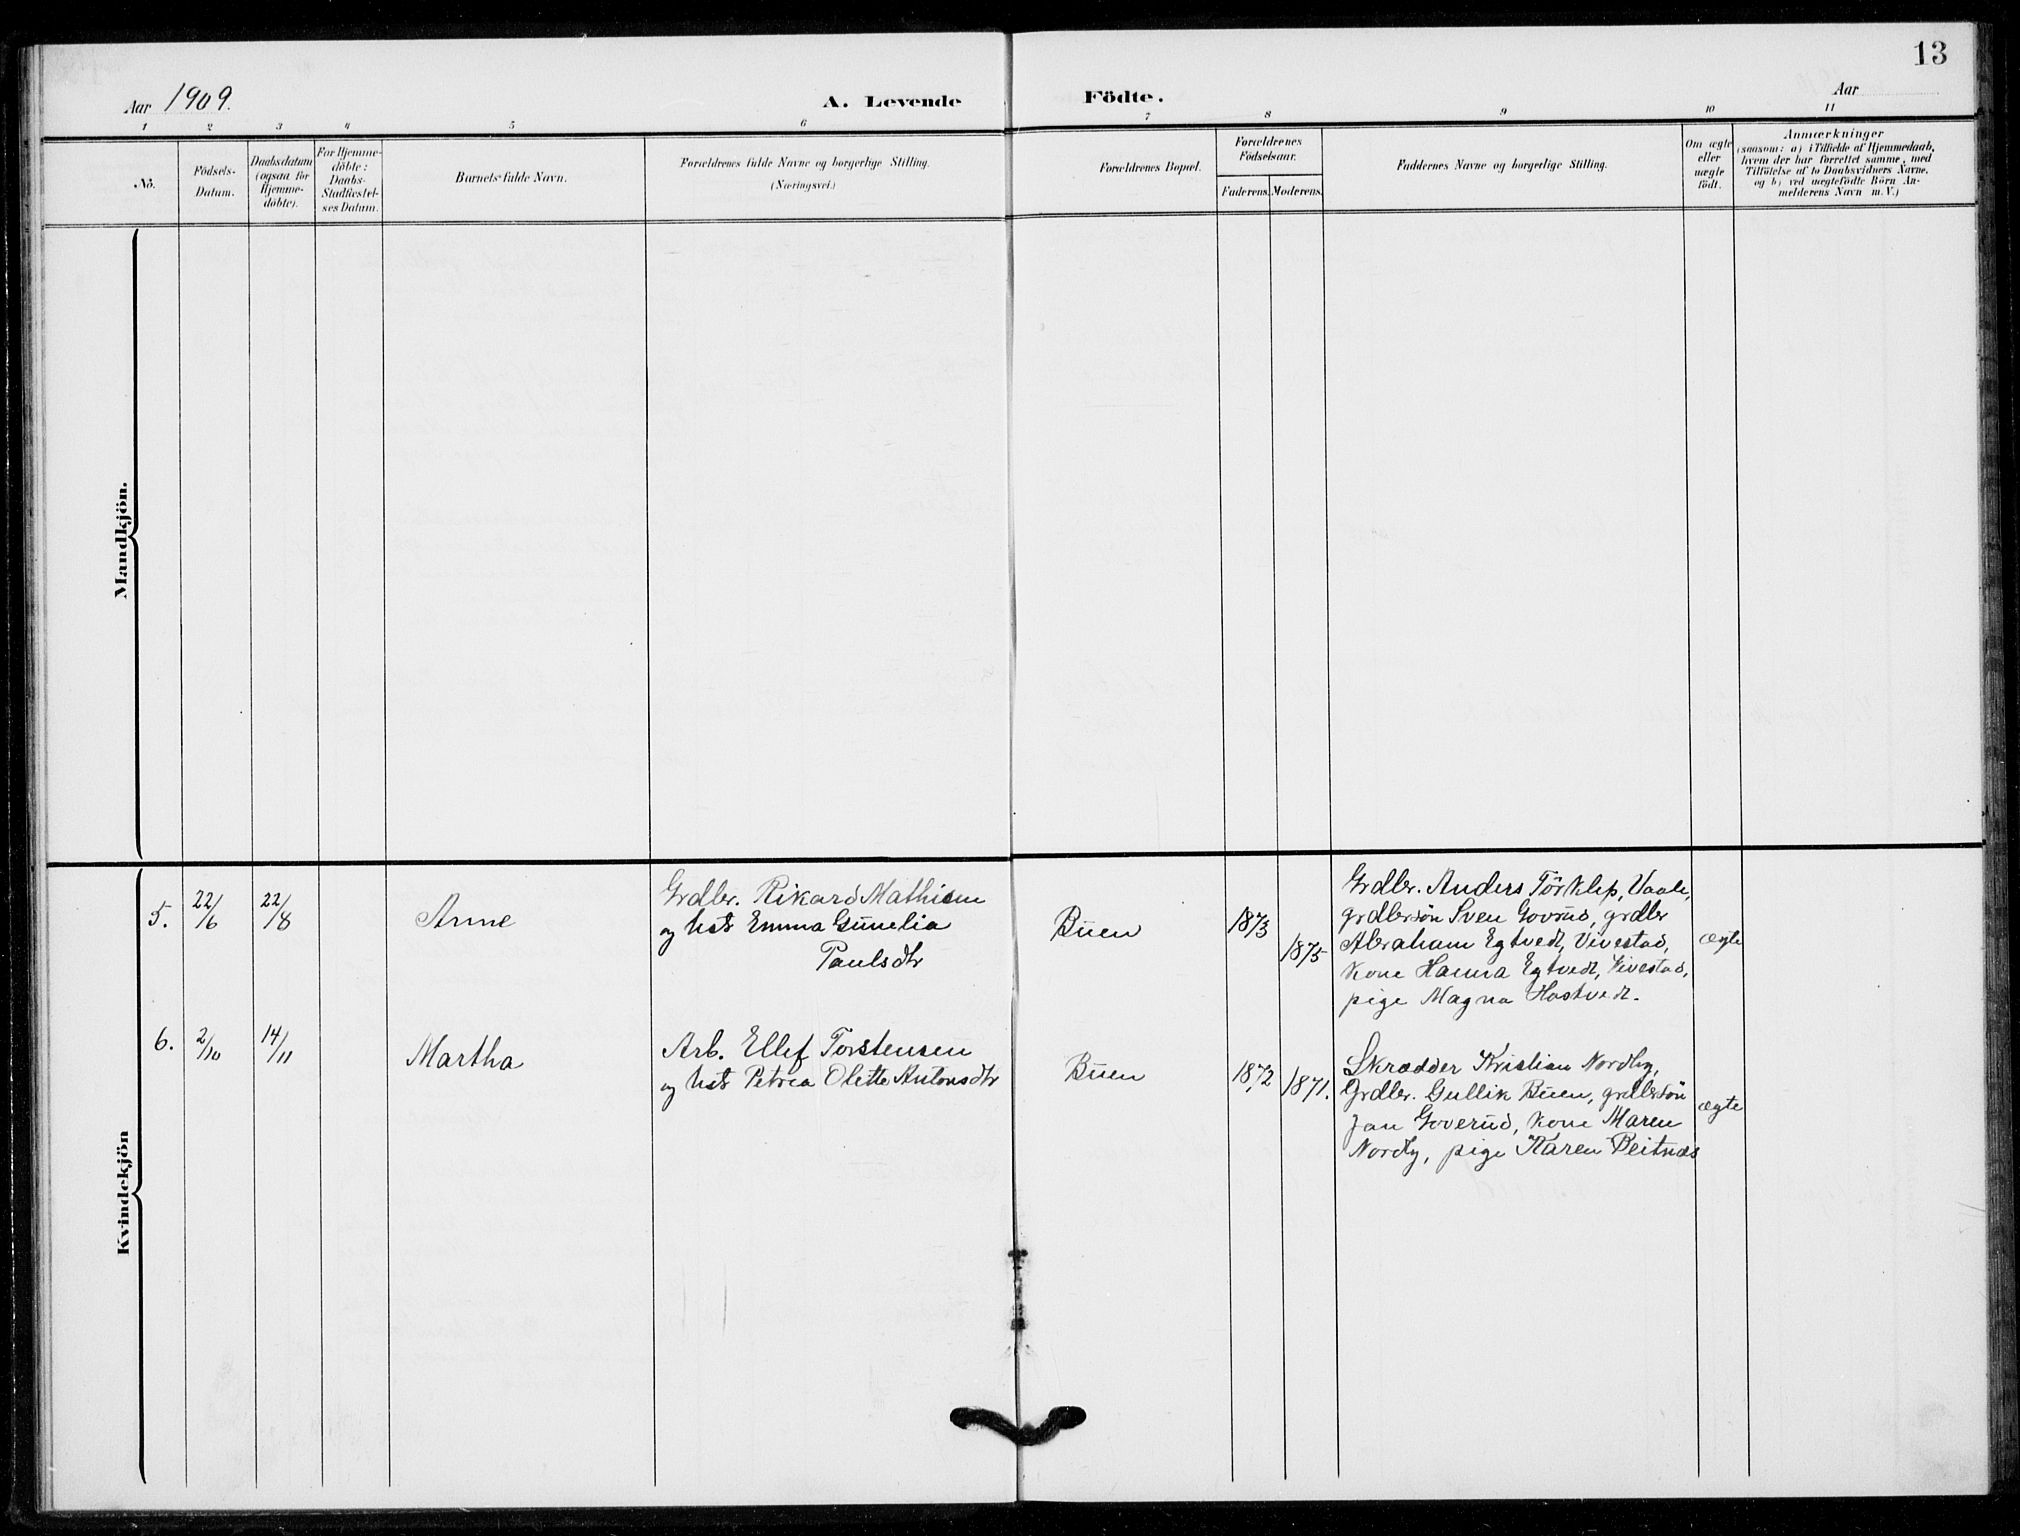 13
Aar 1909.
A. Levende Födte.
Aar
1 2 3 4 5 6 7 8 9 10 11
No.
Födsels-
Datum.
Daabsdatum
(ogsaa for
Hjemme-
döbte).
For Hjemme-
döbte:
Daabs-
Stadfæstel-
ses Datum.
Barnets fulde Navn.
Forældrenes fulde Navne og borgerlige Stilling.
(Næringsvei.)
Forældrenes Bopæl.
Forældrenes
Födselsaar.
Faderens. Moderens.
Faddernes Navne og borgerlige Stilling.
Om ægte
eller
uægte
födt.
Anmærkninger
(saasom: a) i Tilfælde af Hjemmedaab,
hvem der har forrettet samme, med
Tilföielse af to Daabsvidners Navne,
og b) ved uægtefödte Börn An-
melderens Navn m. V.)
Mandkjön.
Kvindekjön
5. 22/6 22/8 Anne
Grdbr. Rikard Mathisen
og hst Emma Gunelia
Paulsdtr
Buen
1873
1875
Grdbr. Anders Törklep, Vaale,
grdbrsön Sven Goverud, grdbr
Abraham Egtvedt, Vivestad,
kone Hanna Egtvedt, Vivestad,
pige Magna Hostvedt.
ægte
6. 2/10 14/11 Martha
Arb. Ellef Torstensen
og hst Petrea Olette Antonsdtr
Buen
1872 1871.
Skrædder Kristian Nordby,
Grdbr. Gullik Buen, grdbrsön
Jan Goverud, kone Maren
Nordby, pige Karen Beitnæs
ægte